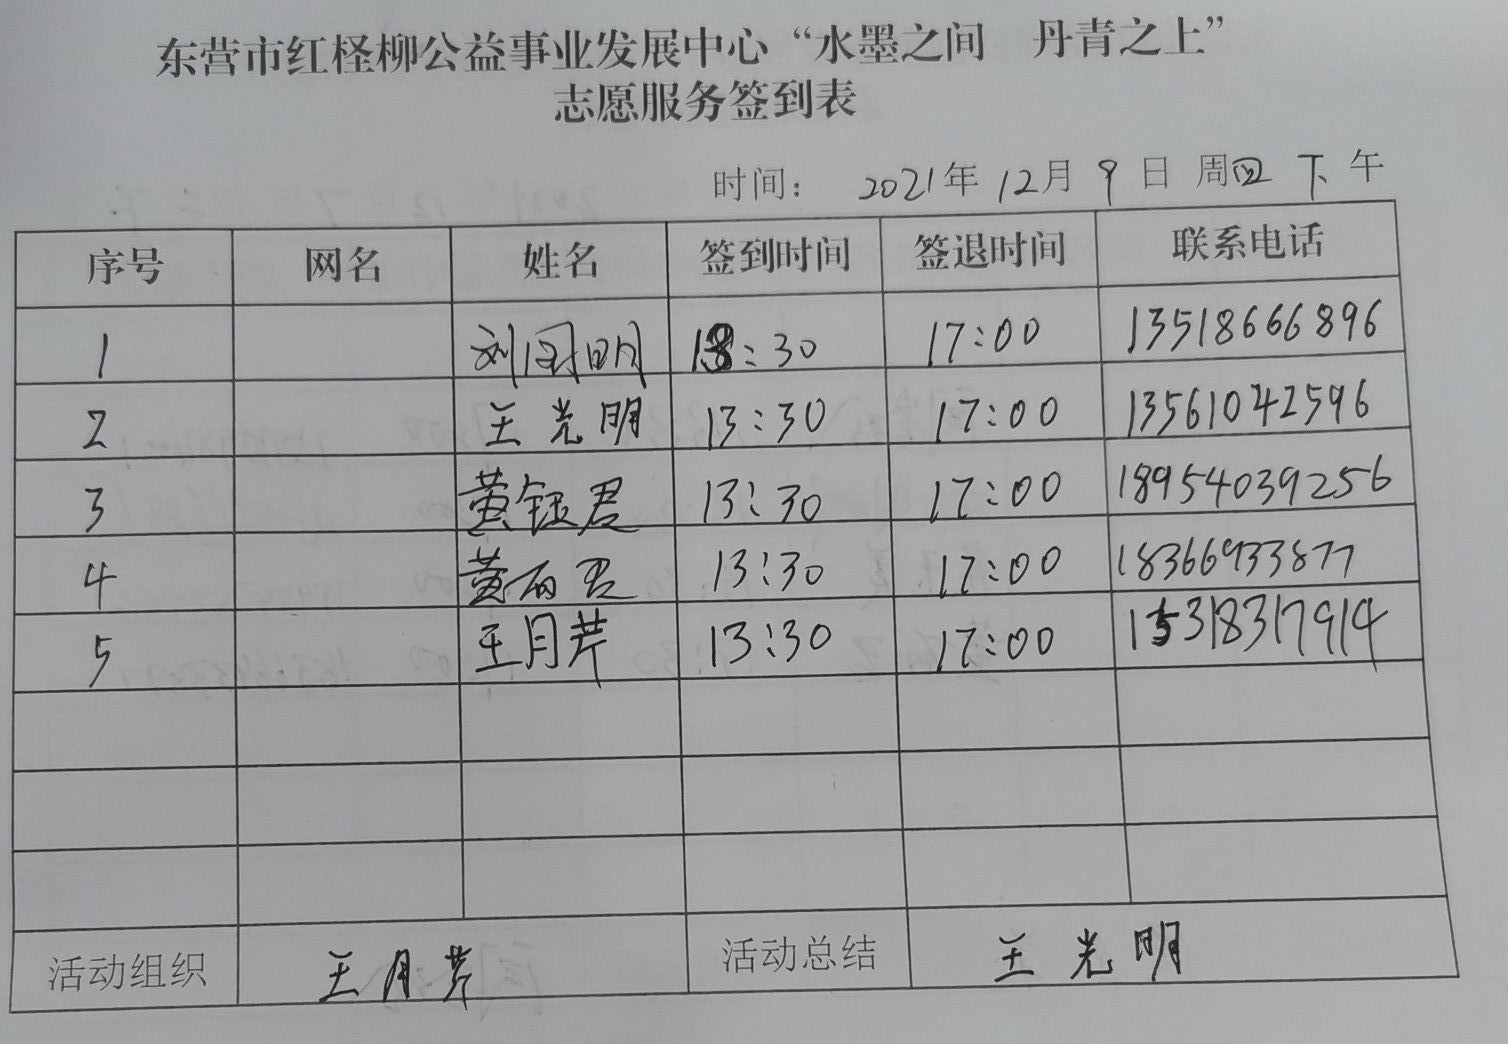 东营市红柽柳公益事业发展中心“水墨之间 丹青之上”
志愿服务签到表
时间： 2021年12月9日 周四 下午
序号 网名 姓名 签到时间 签退时间 联系电话
1 刘国明 13:30 17:00 13518666896
2 王光明 13:30 17:00 13561042596
3 黄钰君 13:30 17:00 18954039256
4 黄丽君 13:30 17:00 18366933877
5 王月芹 13:30 17:00 15318317914
活动组织 王月芹 活动总结 王光明